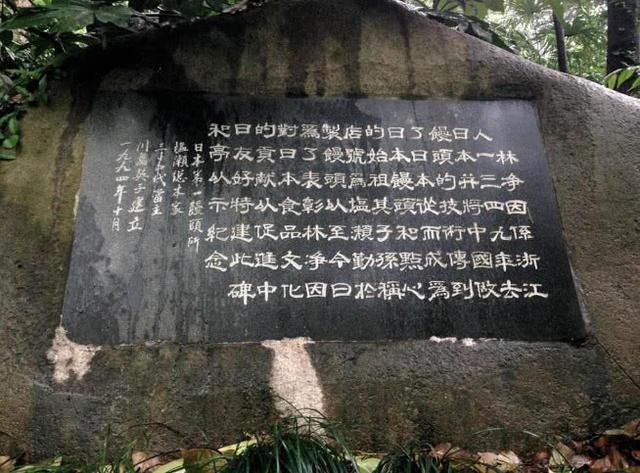 林净因係浙江
人一三四九年去
日本并將中國做
饅頭的技術傳到
了日本從而成爲
日本饅頭和點心
的始祖其子孫稱
店號爲塩瀬勤於
製饅頭以至今日
爲了表彰林净因
對日本食品文化
的貢獻以促進中
日友好特建此碑
和亭以示紀念
日本第一饅頭所
塩瀬総本家
三十四代當主
川島英子建立
一九九四年十月